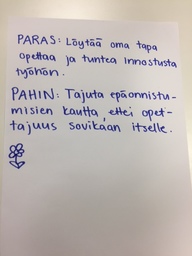 PARAS: Löytää oma tapa
opettaa ja tuntea innostusta
työhön.
PAHIN: Tajuta epäonnistu-
misien kautta, ettei opet-
tajuus sovikaan itselle.